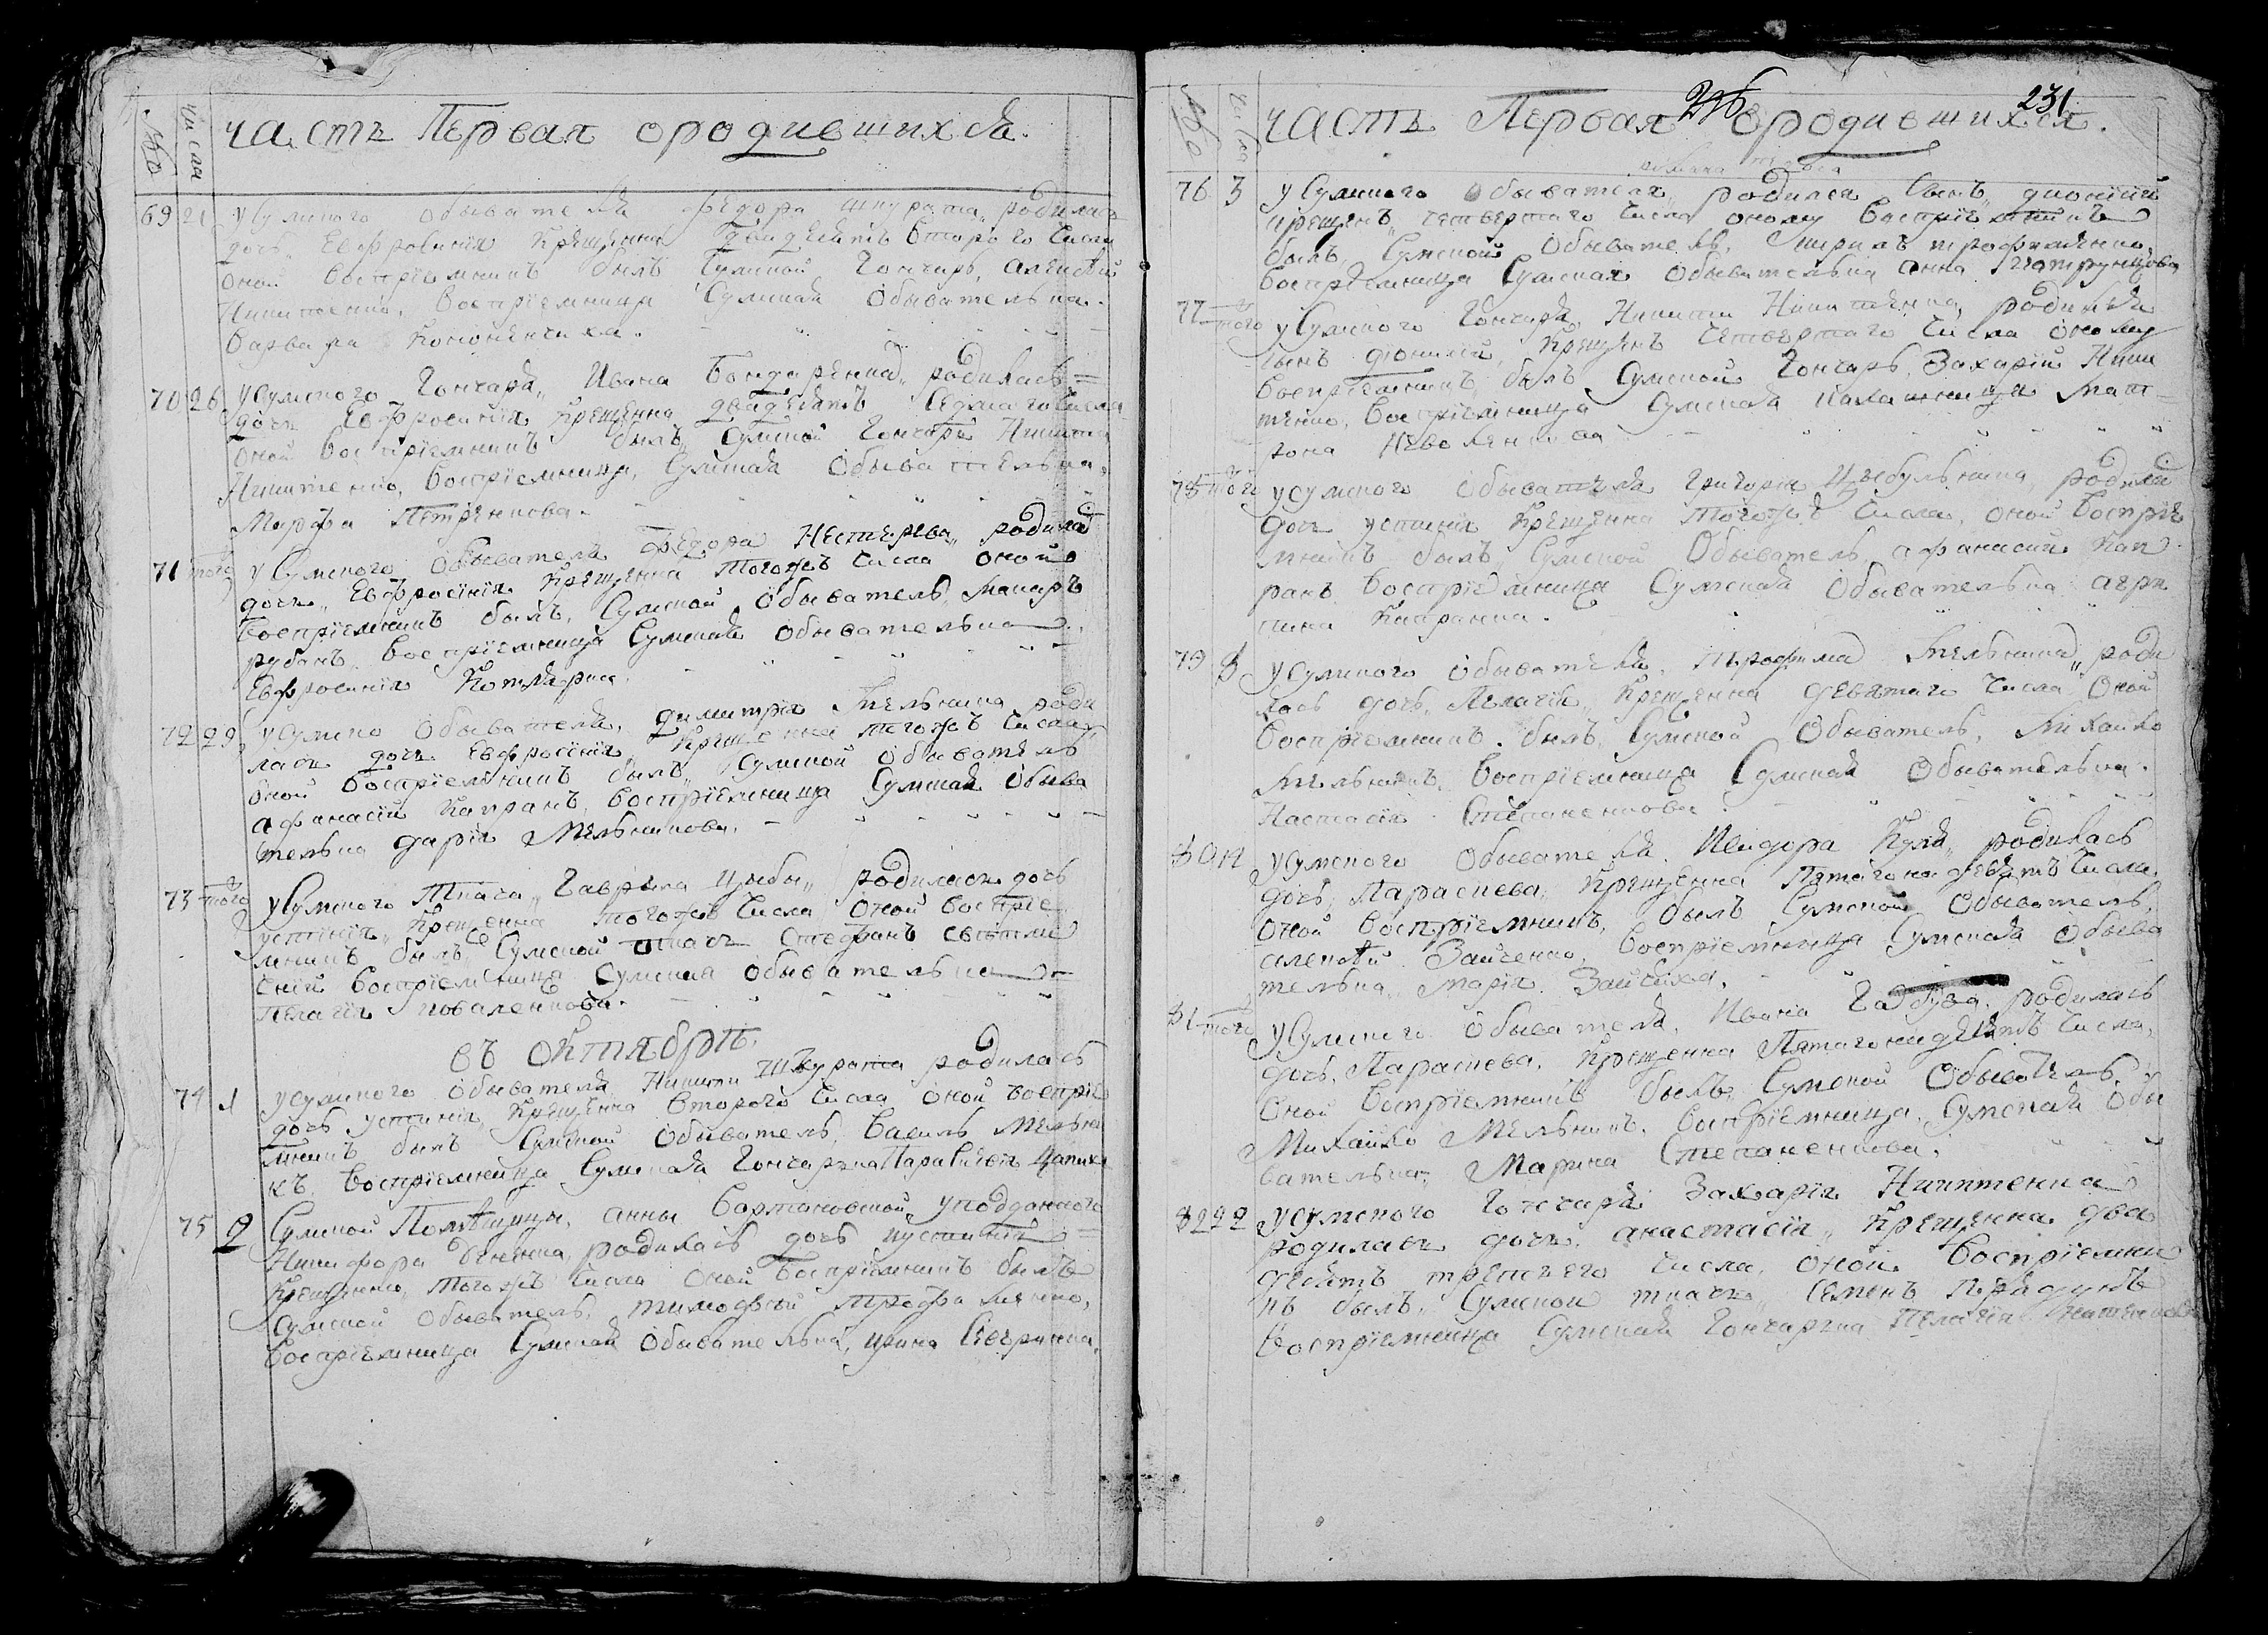 №
числа
часть Первая ородившихся.
69 21 у Сумского обывателя Федора Шкурата родилась
дочь Евфросиния Крещенна двадцять втораго числа
оной восприемникъ былъ Сумской Гончаръ, Алексѣй
Никитенко, восприемница Сумская обывателька
варвара Кононенчиха.
70 26 у Сумского Гончаря, Ивана Бондаренка родилась
дочь Евфросиния Крещенна двадцять седмаго числа
оной восприемникъ былъ Сумской Гончаръ Никита
Никитенко, восприемница, Сумская обывателька,
Марфа Петренкова.
71 того у Сумского обывателя Федора Нестерева родилас
дочь, Евфросиния Крещенна тогожъ числа оной
восприемникъ былъ, Сумской обыватель, Макаръ
рубанъ восприемница Сумская обывателька
Евфросиния Котлярка
72 29 у Сумско обывателя, Димитрия Мельника роди
лась дочь Евфросиния, Крещенна тогожъ числа,
оной восприемникъ былъ, Сумской обыватель
афанасий Капранъ, восприемница Сумская обыва
телька дария Мельникова.
73 того у Сумского Ткача, Гаврила Цыбы, родилась дочь
устиния, Крещенна тогожъ числа, оной восприе
мникъ былъ Сумской ткачъ Стефанъ
восприемница Сумская обывателька
Пелагия коваленкова.
въ октябрѣ.
74 1 у сумского обывателя Никити Шкурата родилась
дочь устиния, Крещенна второго числа оной восприе
мникъ былъ Сумской обыватель, Василь Мельни
къ. восприемница Сумская Гончарка
75 2 Сумской Помѣщицы, анны Бартановской, уподданного
Никифора родилась дочь иустиния
Крещенна, тогожъ числа оной восприемникъ былъ
Сумской обыватель, тимофей трофименко,
восприемница Сумская обывателька, ирина
№
числа
226
231
часть Первая ородившихся.
76 3 у Сумского обывателя, родился сынъ, дионисий
крещенъ, четвертаго числа оному восприемникъ
былъ, Сумской обыватель, Кирилъ трофименко,
восприемница Сумская обывателька анна
77 того у Сумского Гончаря, Никити Никитенка, родился
сынъ дионисий, Крещенъ четвертаго числа оному
восприемникъ былъ Сумской Гончаръ, Захарий Ники
тенко, восприемница Сумская калашница Мат
рона
78 того у сумского обывателя Григория Цыбульника, родилас
дочь устиния Крещенна тогожъ числа оной восприе
мникъ былъ Сумской Обыватель афанасий Кап
ранъ восприемница Сумская обывателька агри
пина Капранка.
79 8 у сумского обывателя, Трофима Мельника, роди
лась дочь, Пелагия, Крещенна девятаго числа оной
восприемникъ былъ Сумской Обыватель, Михайло
Мельникъ, восприемница Сумская обывателька.
Настасия Степаненкова
80 14 у сумского обывателя. Исидора Куля, родилась
дочь, Парасиева, Крещенна Пятагонадесять числа.
оной восприемникъ, былъ Сумской обыватель,
алексѣй Зайченко, восприемница Сумская обыва
телька, мария Зайчиха.
81 того у Сумского обывателя, Ивана родилась
дочь, Парасиева. Крещенна Пятагонадесять числа,
оной восприемникъ былъ Сумской Обыватель,
Михайло Мельникъ. восприемница, Сумская обы
вателька, Марина Степаненкова.
82 22 у сумского Гончаря Захария Никитенка
родилась дочь, анастасия, Крещенна два
десять третьего числа, оной восприемни
къ былъ, Сумской ткачъ, Семенъ
восприемница Сумская Гончарка Пелагия